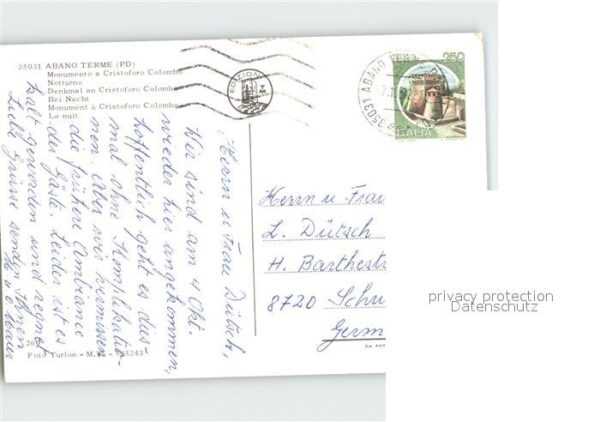 35031 ABANO TERME (PD)
Monumento a Cristoforo Colombo
Notturno
Denkmal an Cristoforo Colombo
Bei Nacht
Monument à Cristoforo Colombo
La nuit
EDIZIONI
250
ITALIA
35031 ABANO
Herrn u Frau Dütsch,
Wir sind am 4 Okt.
wieder hier angekommen,
hoffentlich geht es dies
mal ohne Komplikatio-
nen. Aber wir vermissen
die frühere Ambiance
der Gäste. Leider ist es
kalt geworden und regnet
Liebe Grüsse senden Ihnen
Herrn u Frau
L. Dütsch
H. Barthestr
8720 Schw
Germ
Foto Turlon - M.
privacy protection
Datenschutz